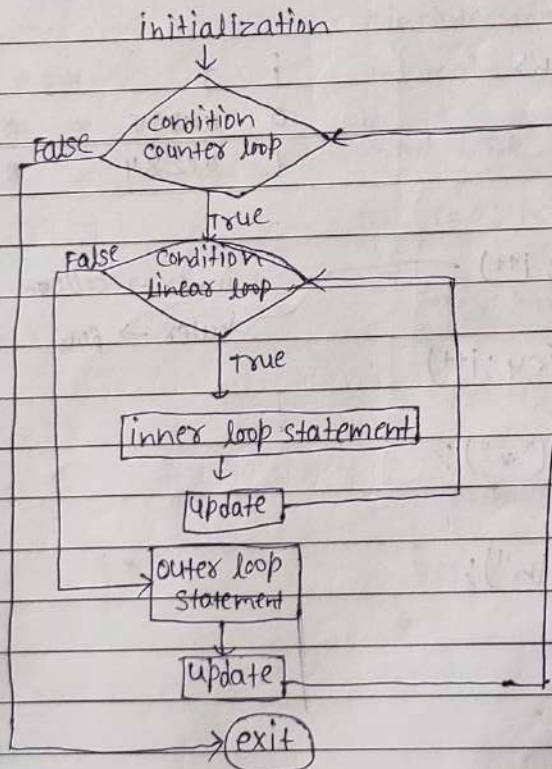 initialization
condition
counter loop
False
True
False
condition
linear loop
True
inner loop statement
update
outer loop
statement
update
exit